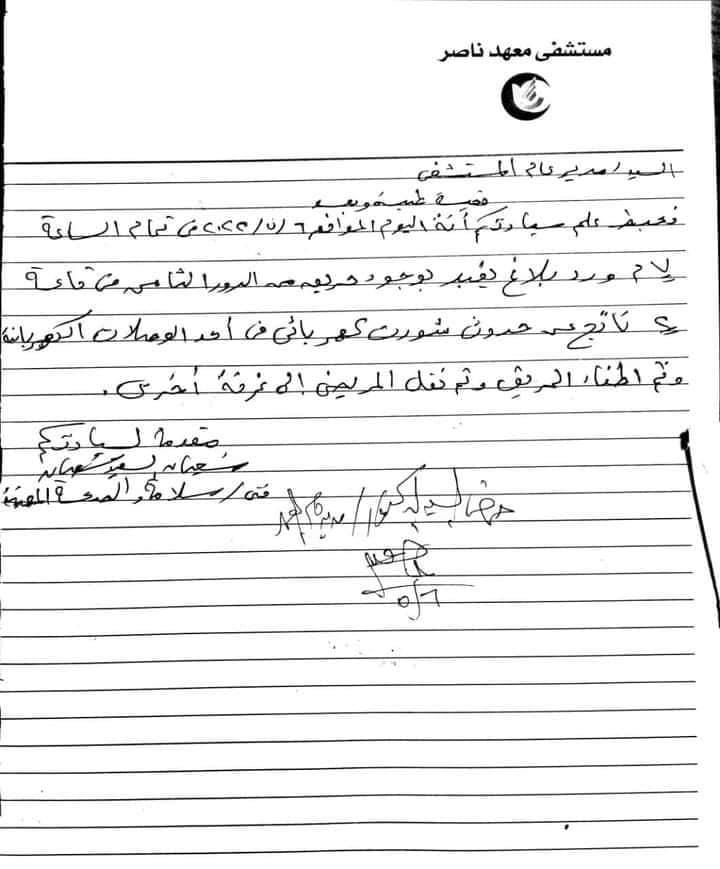 مستشفى معهد ناصر
السيد / مدير عام المستشفى
تحية طيبة وبعد
نحيط علم سيادتكم أنه اليوم الموافق ٦ / ٥ / ٢٠٢٥ فى تمام الساعة
م ورد بلاغ يفيد بوجود حريق من الدور الثامن فى قاعة
ناتج عن حدوث شورت كهربائى فى أحد الوصلات الكهربائية
وتم اطفاء الحريق وتم نقل المريض الى غرفة أخرى .
مقدمة لسيادتكم
شعبان السيد شعبان
فنى / سلامة والصحة المهنية
السيد الدكتور / مدير عام
٥/٦